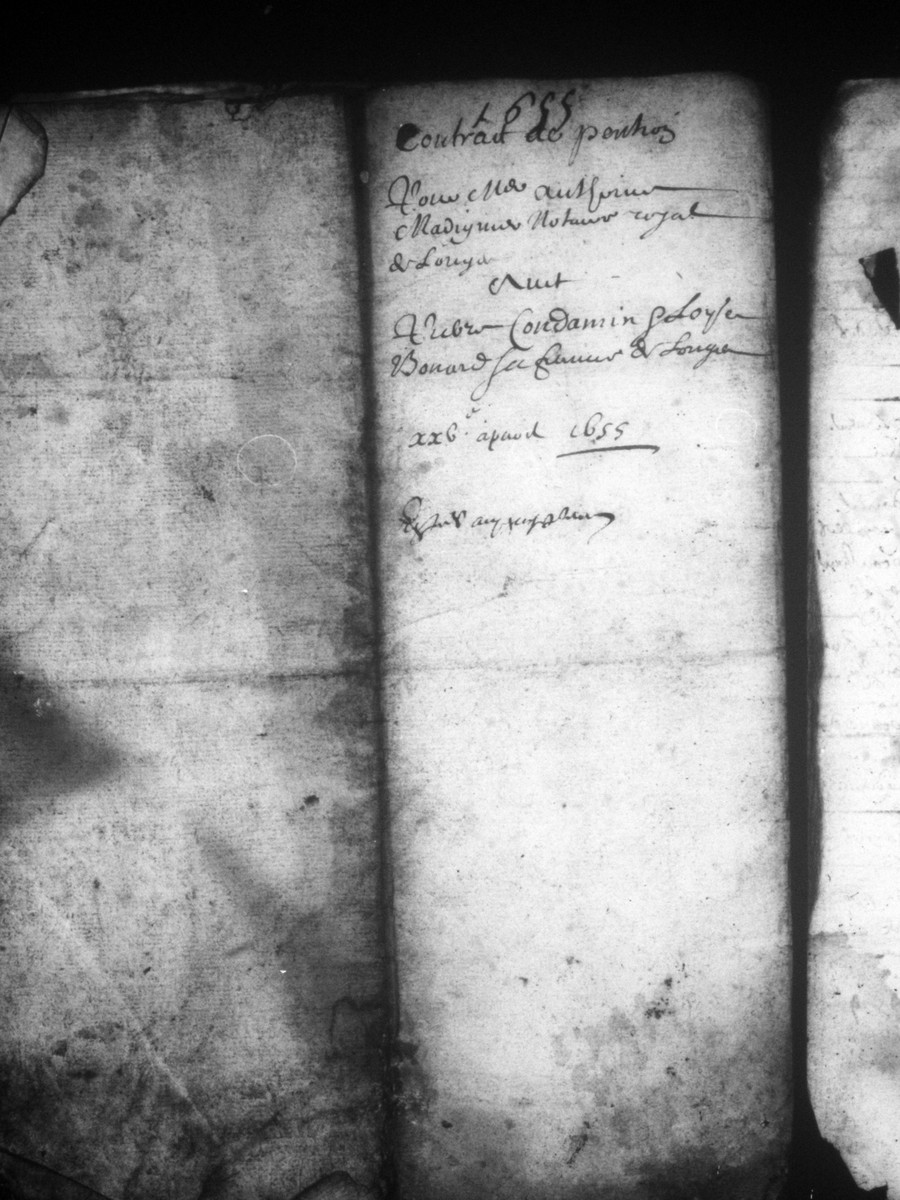 1655
Contract de penhon
Pour Me Anthoine
Madignier Notaire royal
de Longe
Anet
Pierre Condamin & Loyse
Bonard sa femme de Longe
xxv apvril 1655